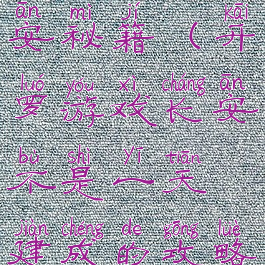 ān mì jí kāi
安秘籍（开
luó yóu xì cháng ān
罗游戏长安
bú shì yī tiān
不是一天
jiàn chéng de gōng lüè
建成的攻略